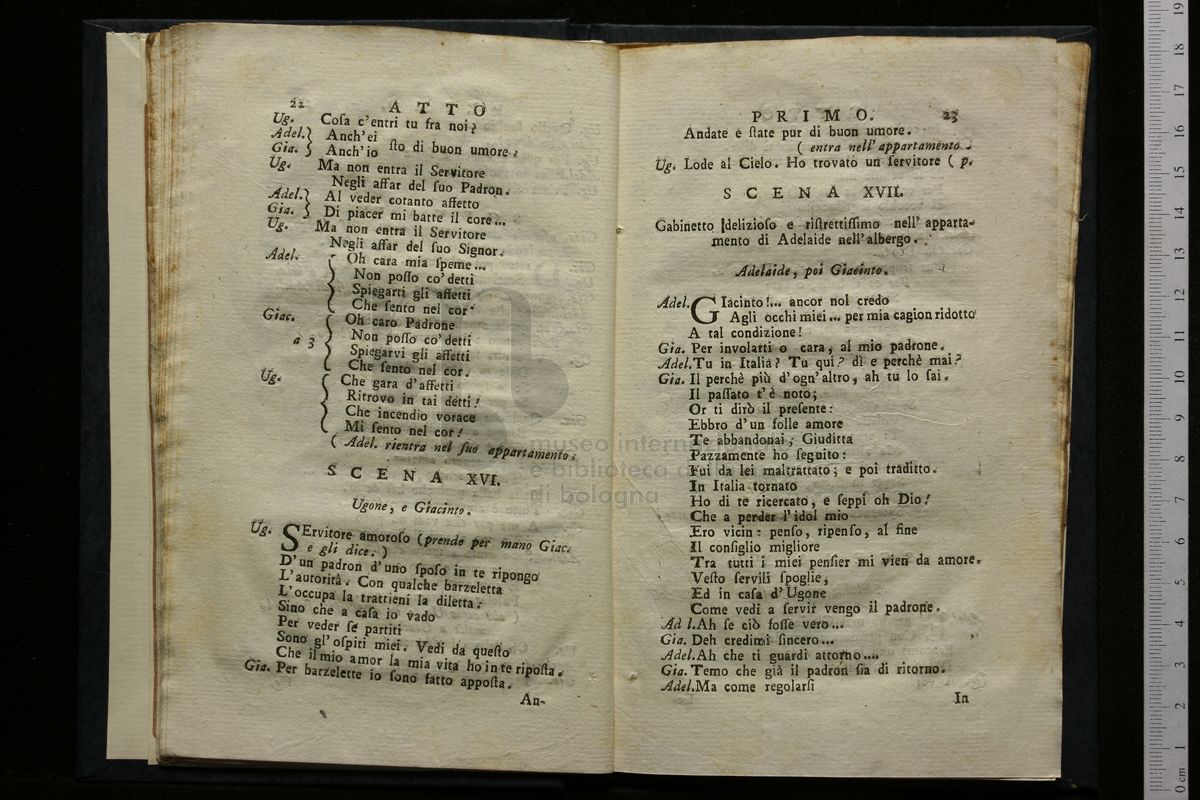 22 ATTO
Ug. Cosa c'entri tu fra noi?
Adel.} Anch'ei
Gia.} Anch'io sto di buon umore.
Ug. Ma non entra il Servitore
Negli affar del suo Padron.
Adel.} Al veder cotanto affetto
Gia.} Di piacer mi batte il core...
Ug. Ma non entra il Servitore
Negli affar del suo Signor.
Adel. Oh cara mia speme...
Non posso co' detti
Spiegarti gli affetti
Che sento nel cor.
Giac. Oh caro Padrone
a 3 Non posso co' detti
Spiegarvi gli affetti
Che sento nel cor.
Ug. Che gara d'affetti
Ritrovo in tai detti!
Che incendio vorace
Mi sento nel cor!
( Adel. rientra nel suo appartamento.
SCENA XVI.
Ugone, e Giacinto.
Ug. SErvitore amoroso (prende per mano Giac.
e gli dice.)
D'un padron d'uno sposo in te ripongo
L'autorità. Con qualche barzeletta
L'occupa la trattieni la diletta:
Sino che a casa io vado
Per veder se partiti
Sono gl'ospiti miei. Vedi da questo
Che il mio amor la mia vita ho in te riposta.
Gia. Per barzelette io sono fatto apposta.
An-
PRIMO. 23
Andate e state pur di buon umore.
( entra nell' appartamento.
Ug. Lode al Cielo. Ho trovato un servitore ( p.
SCENA XVII.
Gabinetto delizioso e ristrettissimo nell' apparta-
mento di Adelaide nell'albergo.
Adelaide, poi Giacinto.
Adel. GIacinto!... ancor nol credo
Agli occhi miei... per mia cagion ridotto
A tal condizione!
Gia. Per involarti o cara, al mio padrone.
Adel. Tu in Italia? Tu qui? dì e perchè mai?
Gia. Il perchè più d'ogn'altro, ah tu lo sai.
Il passato t'è noto;
Or ti dirò il presente:
Ebbro d'un folle amore
Te abbandonai; Giuditta
Pazzamente ho seguito:
Fui da lei maltrattato; e poi traditto.
In Italia tornato
Ho di te ricercato, e seppi oh Dio!
Che a perder l'idol mio
Ero vicin: penso, ripenso, al fine
Il consiglio migliore
Tra tutti i miei pensier mi vien da amore.
Vesto servili spoglie,
Ed in casa d'Ugone
Come vedi a servir vengo il padrone.
Ad l. Ah se ciò fosse vero...
Gia. Deh credimi sincero...
Adel. Ah che ti guardi attorno....
Gia. Temo che già il padron sia di ritorno.
Adel. Ma come regolarsi
In
museo intern
e biblioteca d
di bologna
0 cm 1 2 3 4 5 6 7 8 9 10 11 12 13 14 15 16 17 18 19